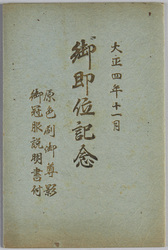 大正四年十一月
御即位記念
原色刷御尊影
御冠服説明書付